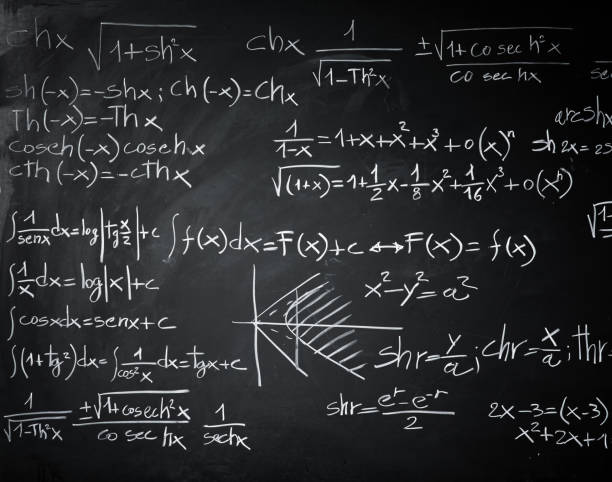 chx √1+sh²x chx 1/√1-Th²x ±√1+cosech²x/cosechx
sh(-x)=-shx; ch(-x)=chx
Th(-x)=-Thx
Cosech(-x)cosechx
cth(-x)=-cthx
arcshx
1/1-x=1+x+x²+x³+o(x)ⁿ sh2x=2s
√(1+x)=1+1/2x-1/8x²+1/16x³+o(xⁿ)
∫1/senx dx=log|tg x/2|+c ∫f(x)dx=F(x)+c↔F(x)=f(x)
∫1/x dx=log|x|+c x²-y²=a²
∫cosxdx=senx+c
∫(1+tg²)dx=∫1/cos²x dx=tgx+c shr=y/a; chr=x/a; thr
1/√1-Th²x ±√1+cosech²x/cosechx 1/sechx shr=eʳ-e⁻ʳ/2 2x-3=(x-3)
x²+2x+1